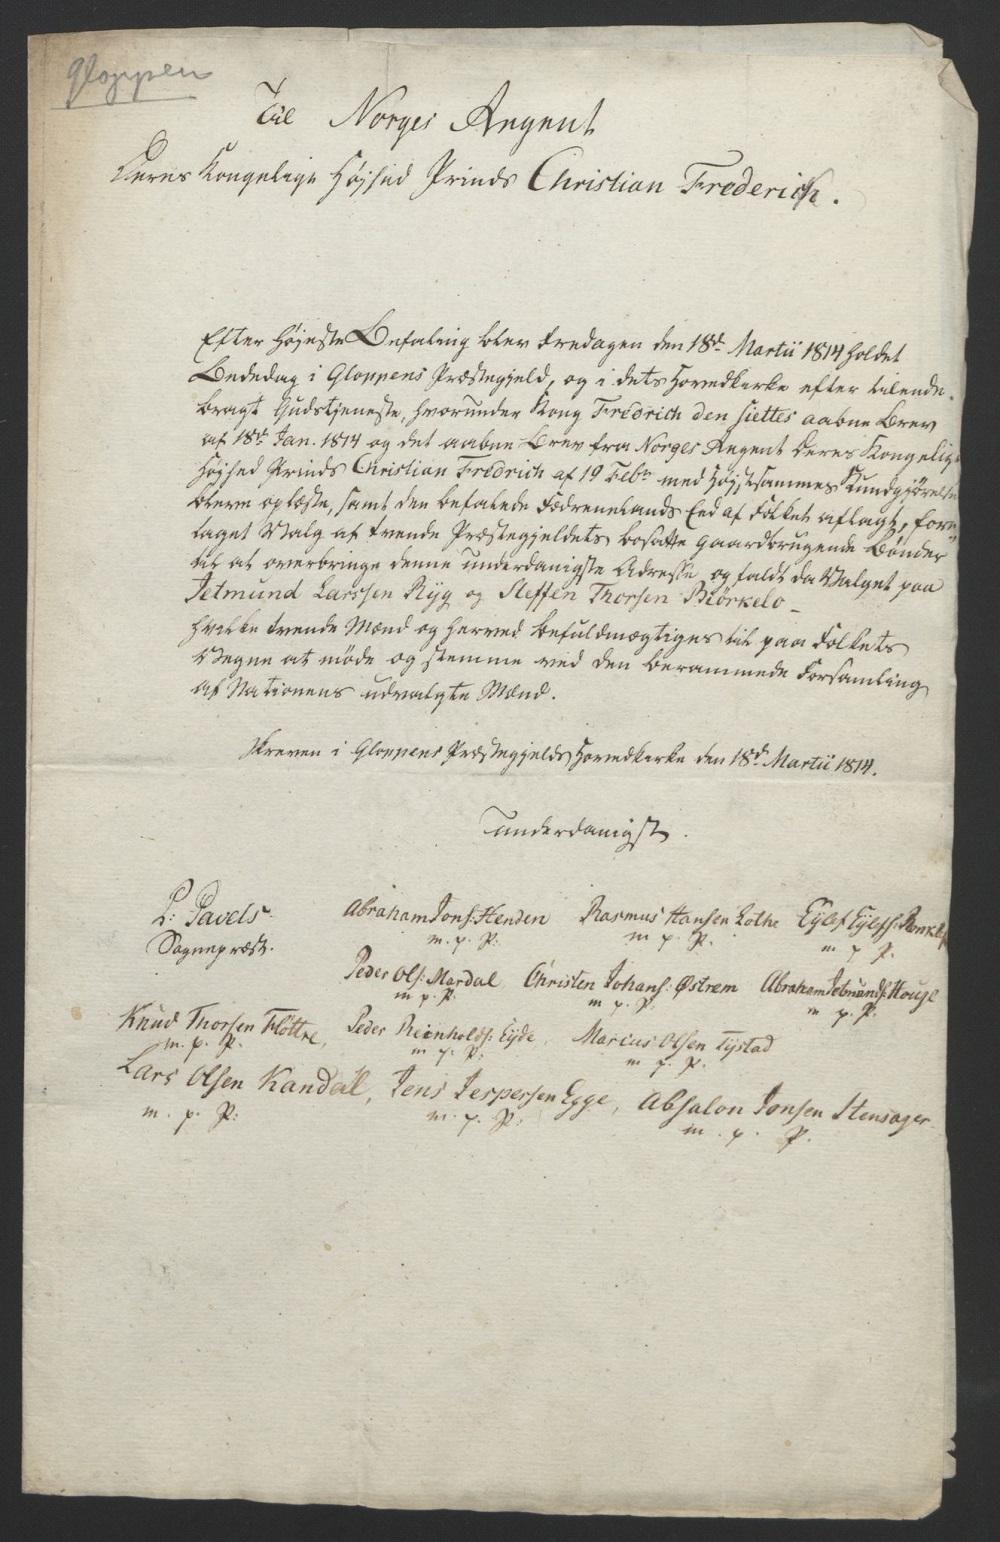 Gloppen
Til Norges Regent
Deres Kongelige Højhed Prinds Christian Frederich.
Efter Højeste Befaling blev Fredagen den 18de Martii 1814 holdet
Bededag i Gloppens Præstegjeld, og i dets Hovedkirke efter tilende-
bragt Gudstjeneste, hvorunder Kong Fredrich den siettes aabne Brev
af 18de Jan. 1814 og det aabne Brev fra Norges Regent Deres Kongelige
Højhed Prinds Christian Fredrich af 19 Febr med Højstsammes Kundgjørelse
bleve oplæste, samt den befalede Fædrenelands Eed af Folket aflagt, fore-
taget Valg af tvende Præstegjeldets bosatte gaardbrugende Bønder
til at overbringe denne underdanigste Adresse, og faldt da Valget paa
Jetmund Larssen Ryg og Steffen Thorsen Biørkelo -
hvilke tvende Mænd og herved befuldmægtiges til paa Folkets
Vegne at møde og stemme ved den berammede Forsamling
af Nationens udvalgte Mænd.
Skreven i Gloppens Præstegjelds Hovedkirke den 18de Martii 1814.
Underdanigst.
P: Pavels. Abraham Jons: Henden Rasmus Hansen Lothe Eylef Eylefs:
Sognepræst. m. p. P: m. p. P. m. p. P.
Peder Ols: Mardal Christen Johans: Østrem Abraham Jetmunds: Houge
m. p. P. m. p. P. m. p. P.
Knud Thorsen Fløttre, Peder Reinholds: Eyde, Marius Olsen Tystad
m. p. P. m. p. P. m. p. P.
Lars Olsen Kandal, Jens Jespersen Egge, Absalon Jonsen Stensager
m. p. P: m. p. P. m. p. P.